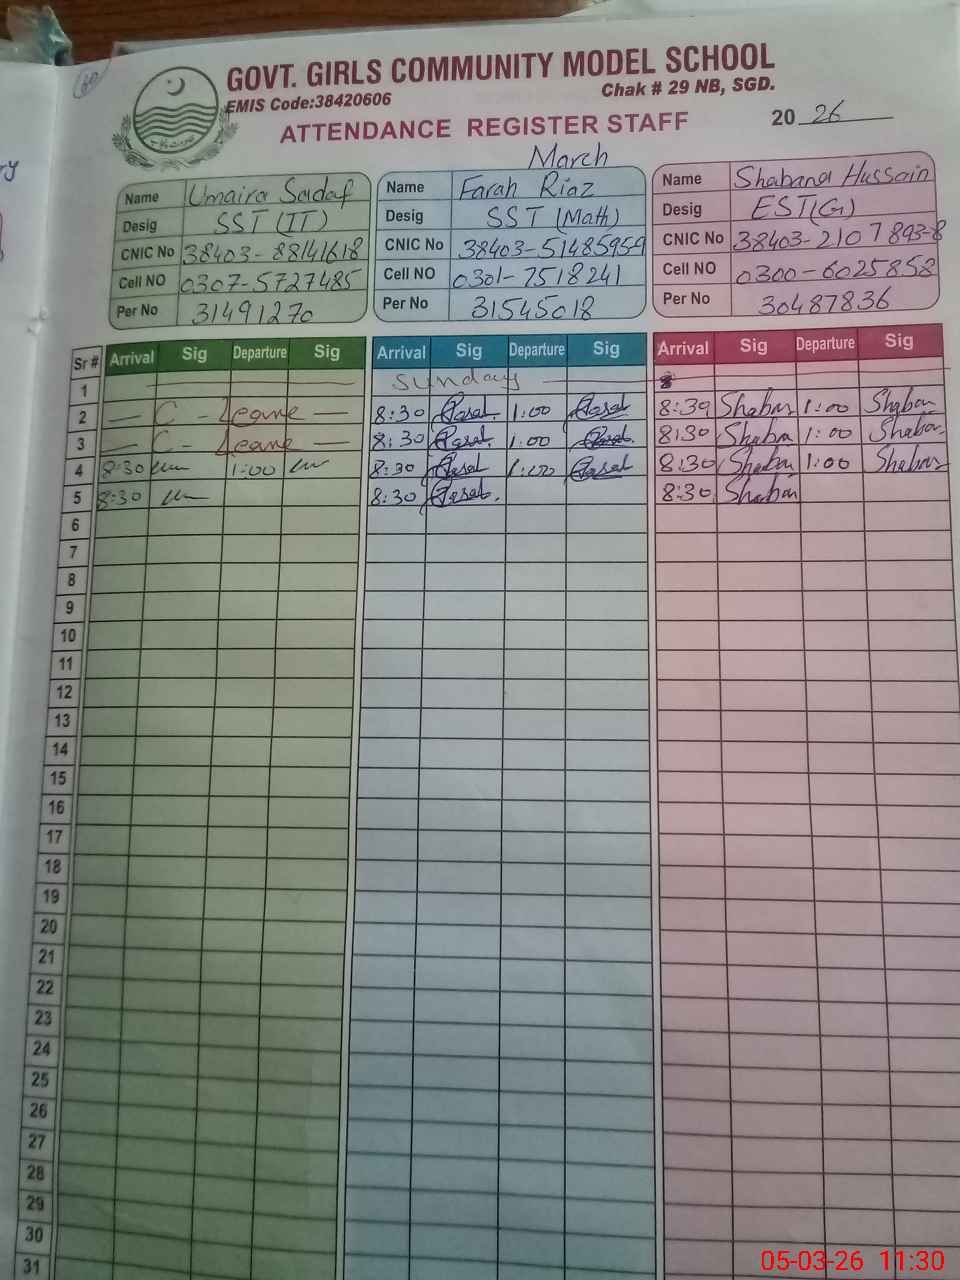 60
GOVT. GIRLS COMMUNITY MODEL SCHOOL
EMIS Code:38420606 Chak # 29 NB, SGD.
ATTENDANCE REGISTER STAFF 20 26
March
Name Umaira Sadaf Name Farah Riaz Name Shabana Hussain
Desig SST (IT) Desig SST (Math) Desig EST(G)
CNIC No 38403-88141618 CNIC No 38403-51485959 CNIC No 38403-2107893-8
Cell NO 0307-5727485 Cell NO 0301-7518241 Cell NO 0300-6025858
Per No 31491270 Per No 31545018 Per No 30487836
Sr # Arrival Sig Departure Sig Arrival Sig Departure Sig Arrival Sig Departure Sig
1 Sunday
2 C - Leave 8:30 1:00 8:30 Shaban 1:00 Shaban
3 C - Leave 8:30 1:00 8:30 Shaban 1:00 Shaban
4 8:30 1:00 8:30 1:00 8:30 Shaban 1:00 Shaban
5 8:30 8:30 8:30 Shaban
6
7
8
9
10
11
12
13
14
15
16
17
18
19
20
21
22
23
24
25
26
27
28
29
30
31
05-03-26 11:30